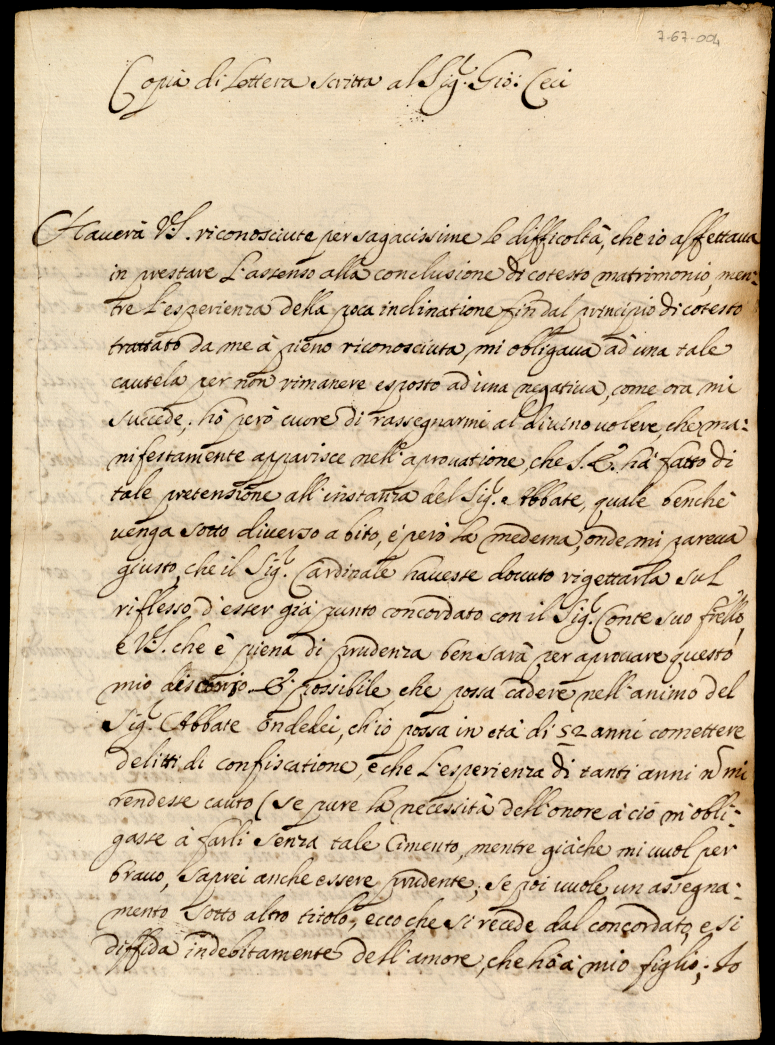 7-67-004
Copia di Lettera scritta al Sig.r Gio: Ceci
Haverà V.S. riconosciute per sagacissime le difficoltà, che io affettaua
in prestare l'assenso alla conclusione di cotesto matrimonio, men-
tre l'esperienza della poca inclinatione fin dal principio di cotesto
trattato da me à pieno riconosciuta, mi obligaua ad una tale
cautela per non rimanere esposto ad una negatiua, come ora mi
succede; hò però cuore di rassegnarmi al diuino uolere, che ma-
nifestamente apparisce nell'aprouatione, che S. E. hà fatto di
tale pretensione all'instanza del Sig.r Abbate, quale benche
uenga sotto diuerso abito, e però la medema, onde mi pareua
giusto, che il Sig.r Cardinale hauesse douuto rigettarla sul
riflesso d'esser già punto concordato con il Sig.r Conte suo frello,
e V.S. che è piena di prudenza ben sarà per aprouare questo
mio discorso. E' possibile che possa cadere nell'animo del
Sig.r Abbate Ondedei, ch'io possa in età di 52 anni comettere
delitti di confiscatione, e che l'esperienza di tanti anni ñ mi
rendesse cauto (se pure la necessità dell'onore à ciò m'obli-
gasse à farli senza tale Cimento, mentre giàche mi uuol per
brauo, saprei anche essere prudente; se poi uuole un assegna-
mento sotto altro titolo, ecco che si recede dal concordato, e si
diffida indebitamente dell'amore, che hò à mio figlio; Io